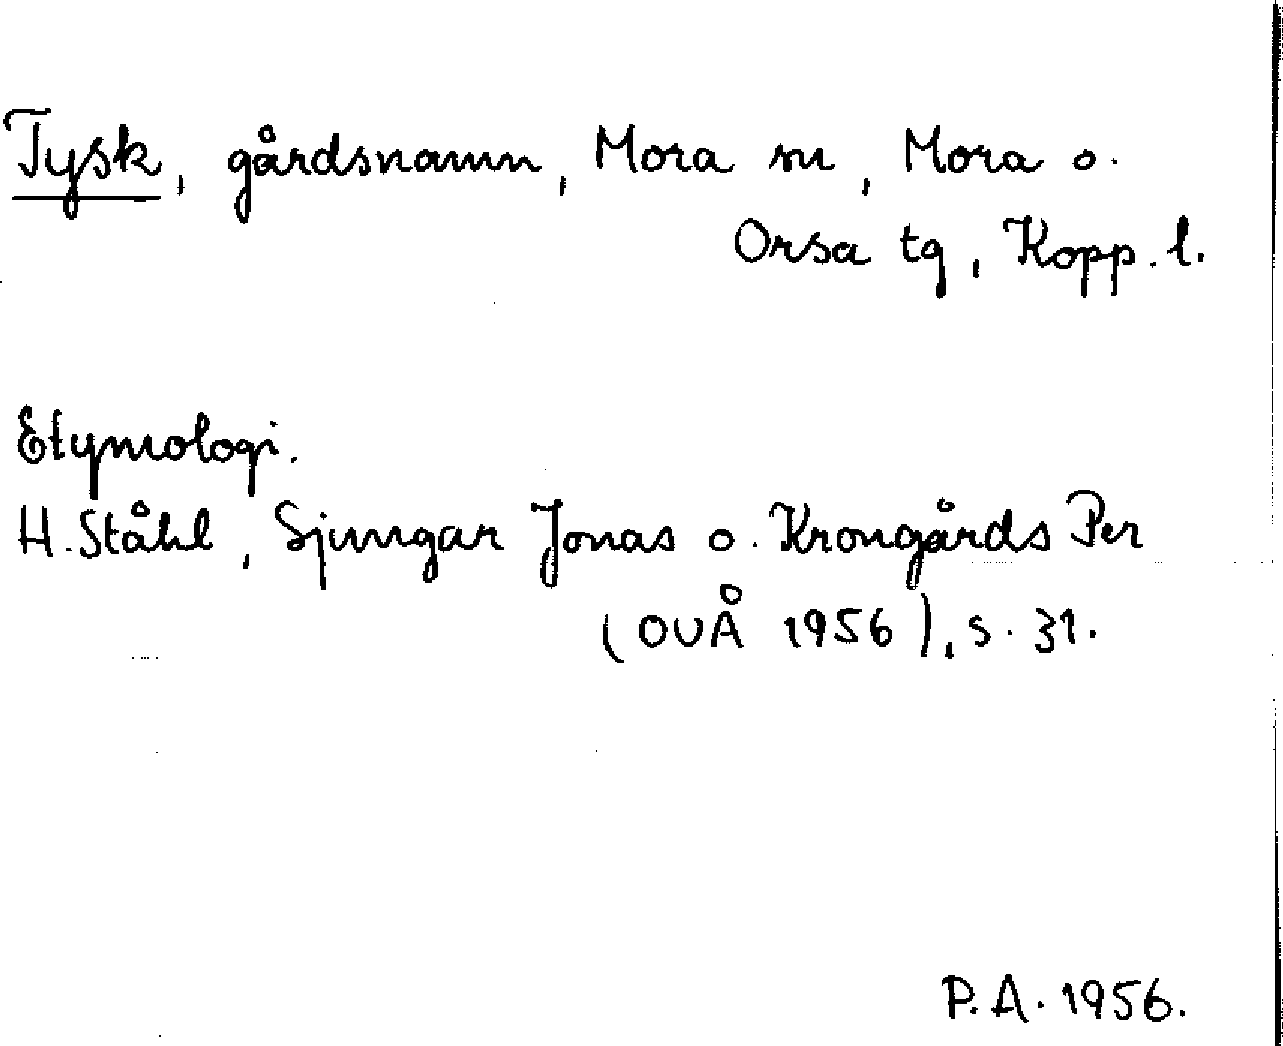 Tysk, gårdsnamn, Mora sn, Mora o.
Orsa tg, Kopp. l.
Etymologi.
H. Ståhl, Sjungar Jonas o. Krongårds Per
(OUÅ 1956), s. 31.
P. A. 1956.